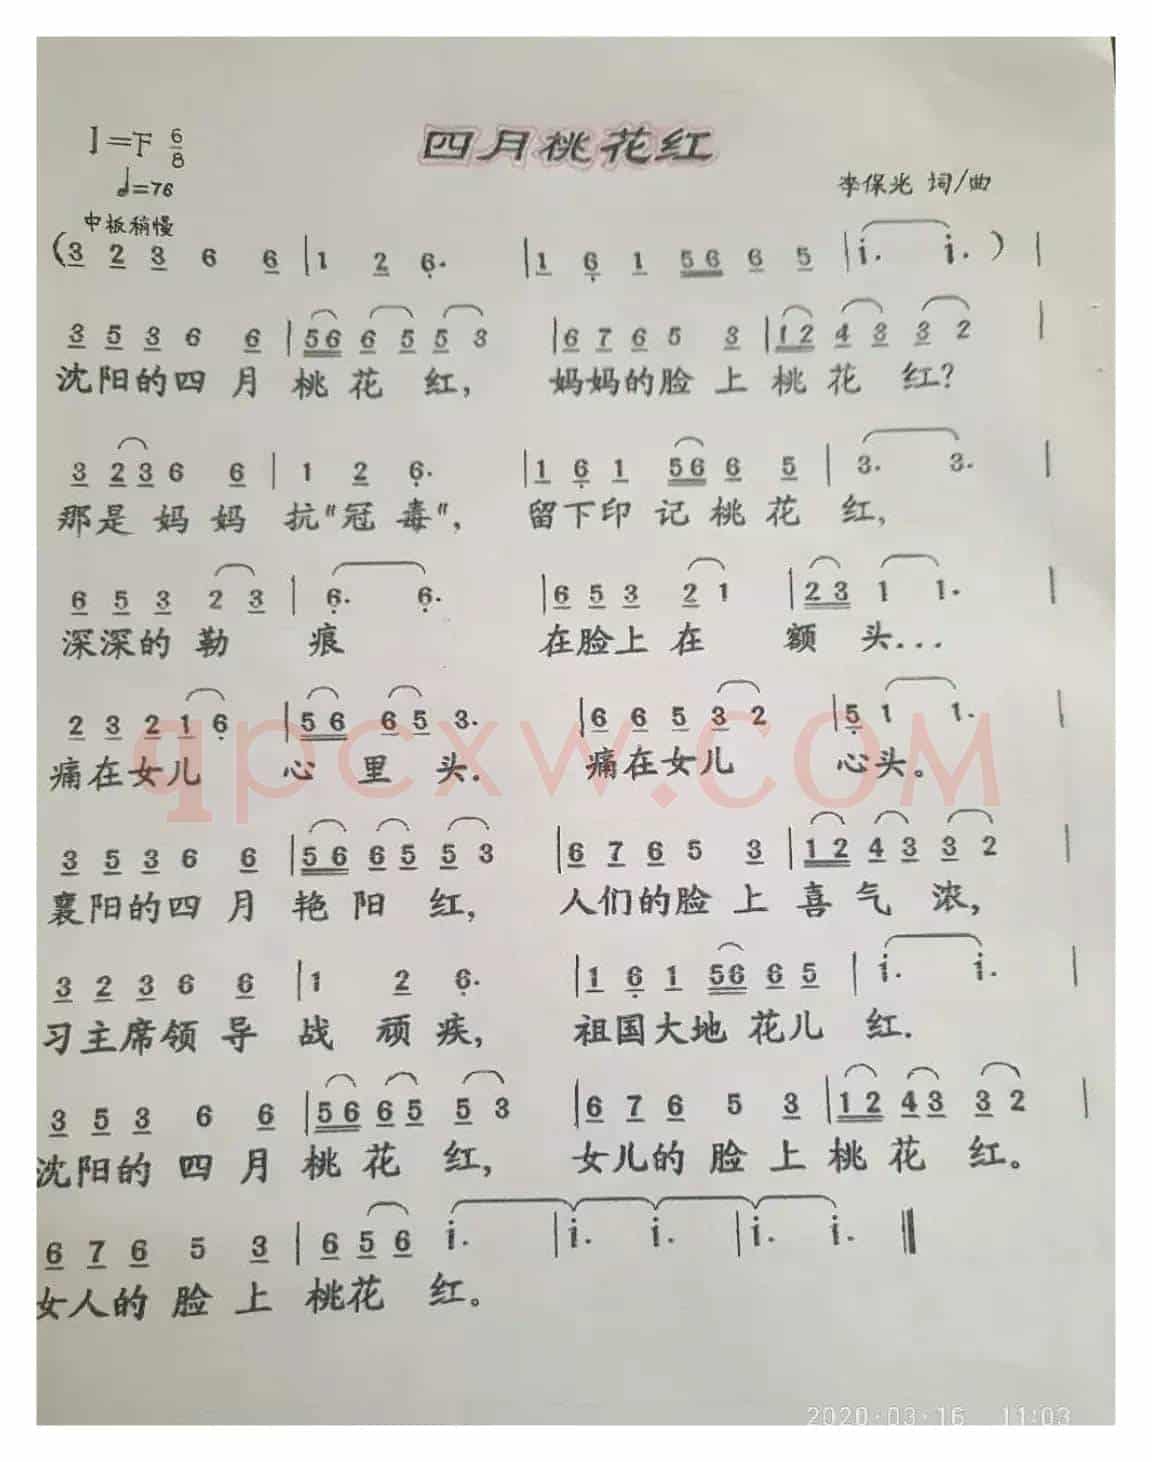 四月桃花红
1=F 6/8
♩=76
中板稍慢
李保光 词/曲
(3 2 3 6 6 | 1 2 6. | 1 6 1 56 6 5 | i. i. ) |
3 5 3 6 6 | 56 6 5 5 3 | 6 7 6 5 3 | 12 4 3 3 2 |
沈阳的四月桃花红, 妈妈的脸上桃花红?
3 23 6 6 | 1 2 6. | 1 6 1 56 6 5 | 3. 3. |
那是妈妈抗"冠毒", 留下印记桃花红,
6 5 3 2 3 | 6. 6. | 6 5 3 2 1 | 23 1 1. |
深深的勒痕 在脸上在额头...
2 3 2 1 6 | 56 65 3. | 6 6 5 3 2 | 5 1 1. |
痛在女儿心里头. 痛在女儿心头。
3 5 3 6 6 | 56 65 5 3 | 6 7 6 5 3 | 12 43 3 2 |
襄阳的四月艳阳红, 人们的脸上喜气浓,
3 2 3 6 6 | 1 2 6. | 1 6 1 56 6 5 | i. i. |
习主席领导战顽疾, 祖国大地花儿红.
3 5 3 6 6 | 56 65 5 3 | 6 7 6 5 3 | 12 43 3 2 |
沈阳的四月桃花红, 女儿的脸上桃花红。
6 7 6 5 3 | 6 5 6 i. | i. i. | i. i. ‖
女人的脸上桃花红。
qpcxw.COM
2020·03·16 11:03